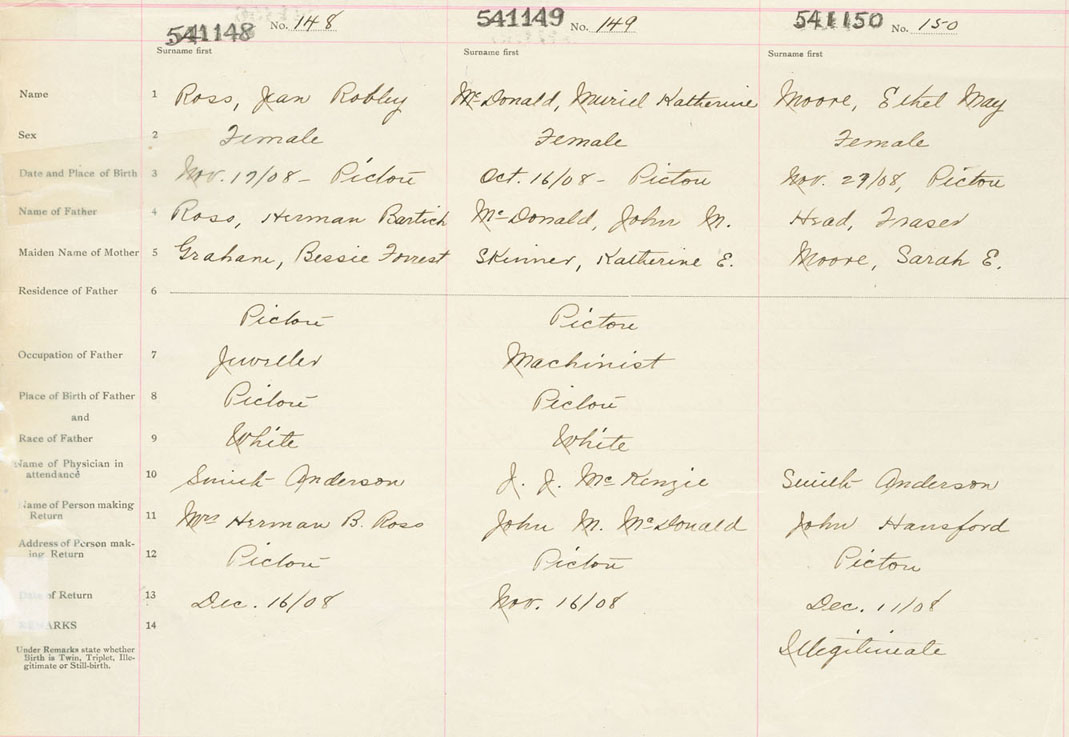 541148 No. 148 541149 No. 149 541150 No. 150
Surname first Surname first Surname first
Name 1 Ross, Jean Robley McDonald, Muriel Katherine Moore, Ethel May
Sex 2 Female Female Female
Date and Place of Birth 3 Nov. 17/08 - Pictou Oct. 16/08 - Pictou Nov. 29/08, Pictou
Name of Father 4 Ross, Herman McDonald, John M. Head, Fraser
Maiden Name of Mother 5 Graham, Bessie Forrest Skinner, Katherine E. Moore, Sarah E.
Residence of Father 6
Pictou Pictou
Occupation of Father 7 Jeweller Machinist
Place of Birth of Father 8 Pictou Pictou
and
Race of Father 9 White White
Name of Physician in
attendance 10 Smith Anderson J. J. McKenzie Smith Anderson
Name of Person making
Return 11 Mrs Herman B. Ross John M. McDonald John Hansford
Address of Person mak-
ing Return 12 Pictou Pictou Pictou
Date of Return 13 Dec. 16/08 Nov. 16/08 Dec. 11/08
REMARKS 14
Under Remarks state whether
Birth is Twin, Triplet, Ille-
gitimate or Still-birth.
Illegitimate